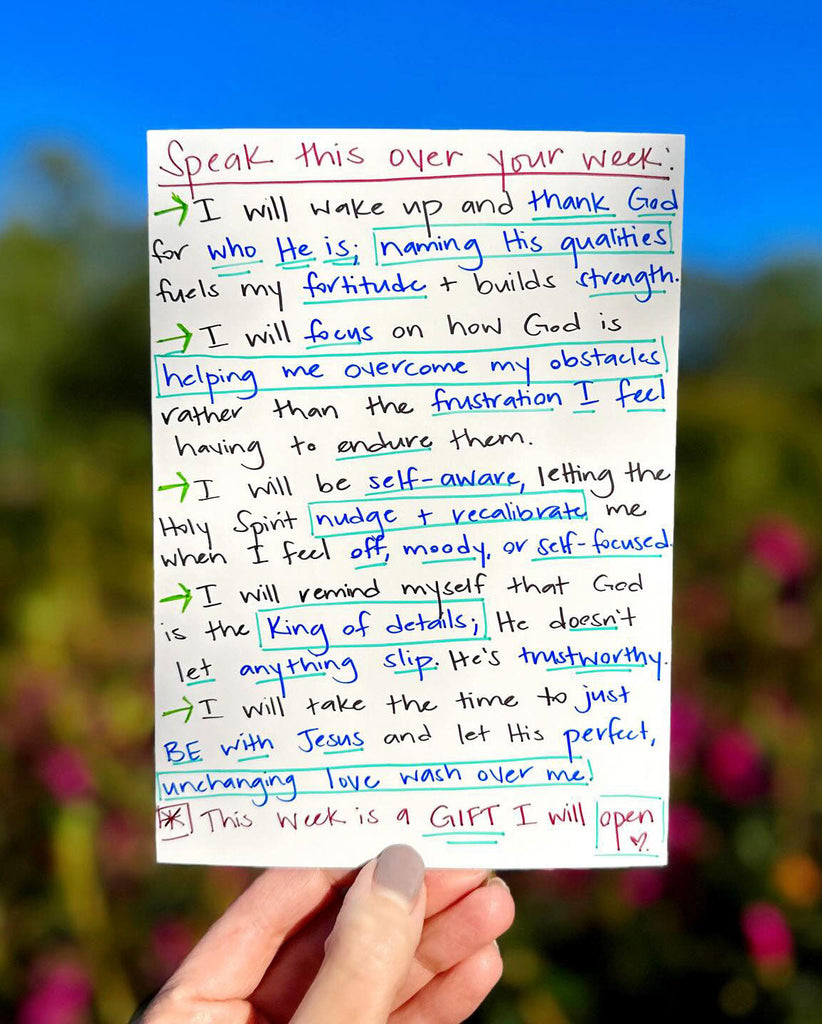 Speak this over your week:
→ I will wake up and thank God
for who He is; naming His qualities
fuels my fortitude + builds strength.
→ I will focus on how God is
helping me overcome my obstacles
rather than the frustration I feel
having to endure them.
→ I will be self-aware, letting the
Holy Spirit nudge + recalibrate me
when I feel off, moody, or self-focused.
→ I will remind myself that God
is the King of details; He doesn't
let anything slip. He's trustworthy.
→ I will take the time to just
BE with Jesus and let His perfect,
unchanging love wash over me!
* This week is a GIFT I will open ♡.